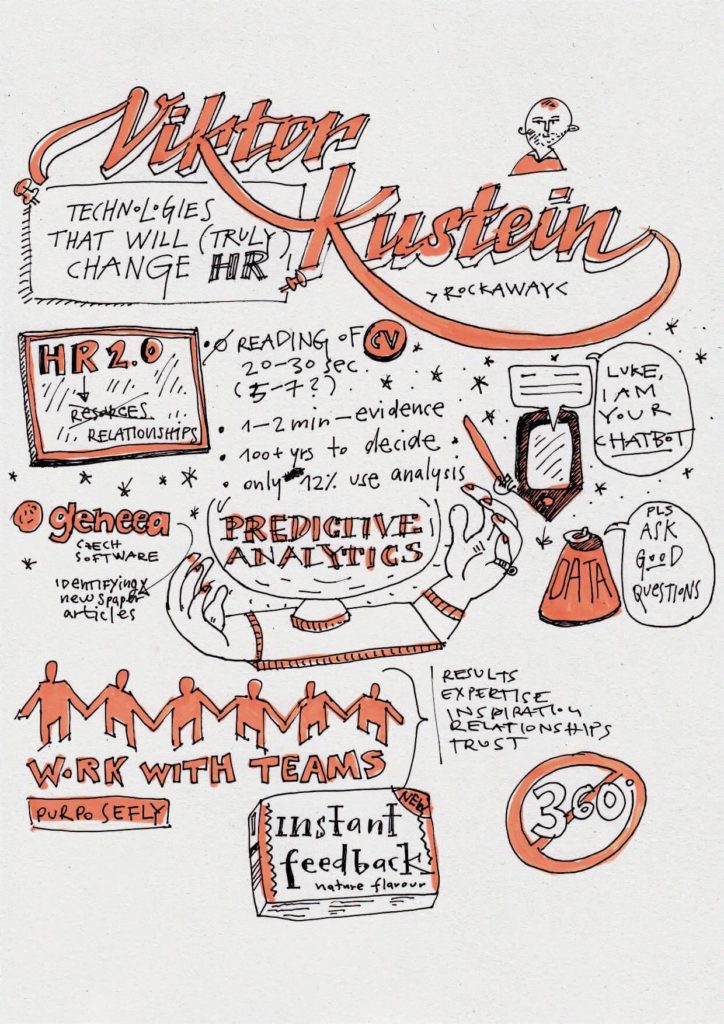 Viktor
Kustein
TECHNOLOGIES
THAT WILL (TRULY)
CHANGE HR
>ROCKAWAY<
HR 2.0
RESORCES
RELATIONSHIPS
READING OF CV
20-30 sec.
(5-7?)
• 1-2 min-evidence
• 100+ yrs to decide
• only 12% use analysis
LUKE,
I AM
YOUR
CHATBOT
geneea
CZECH
SOFTWARE
identifying
newspaper
articles
PREDICTIVE
ANALYTICS
DATA
PLS
ASK
GOOD
QUESTIONS
WORK WITH TEAMS
PURPOSEFLY
RESULTS
EXPERTISE
INSPIRATION
RELATIONSHIPS
TRUST
NEW
instant
feedback
nature flavour
360°